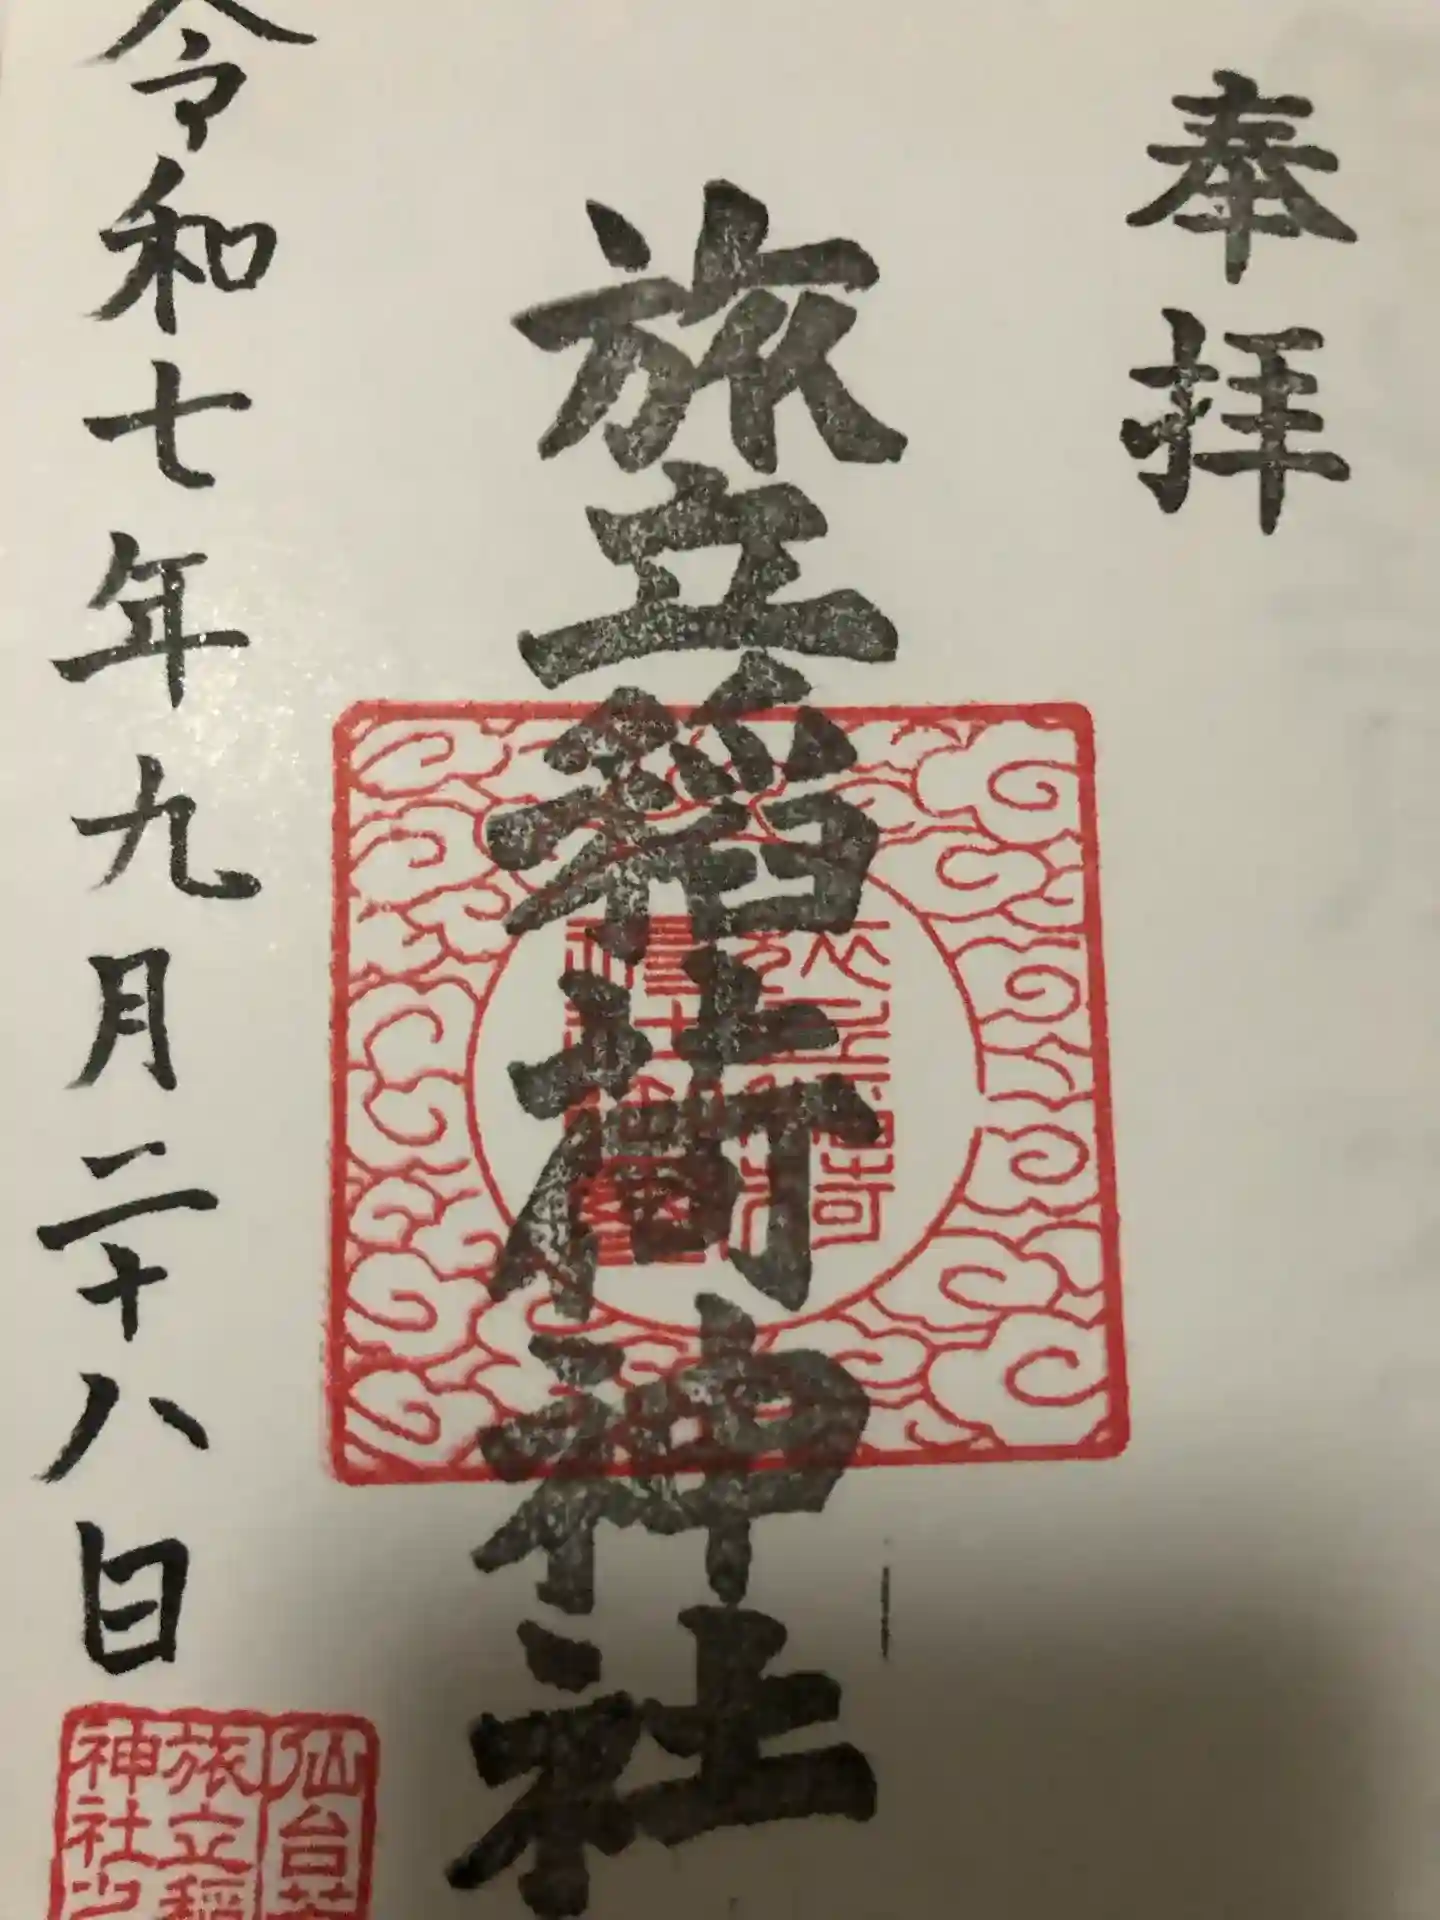 奉拝
旅立稲荷神社
令和七年九月二十八日
仙台
旅立稲
神社